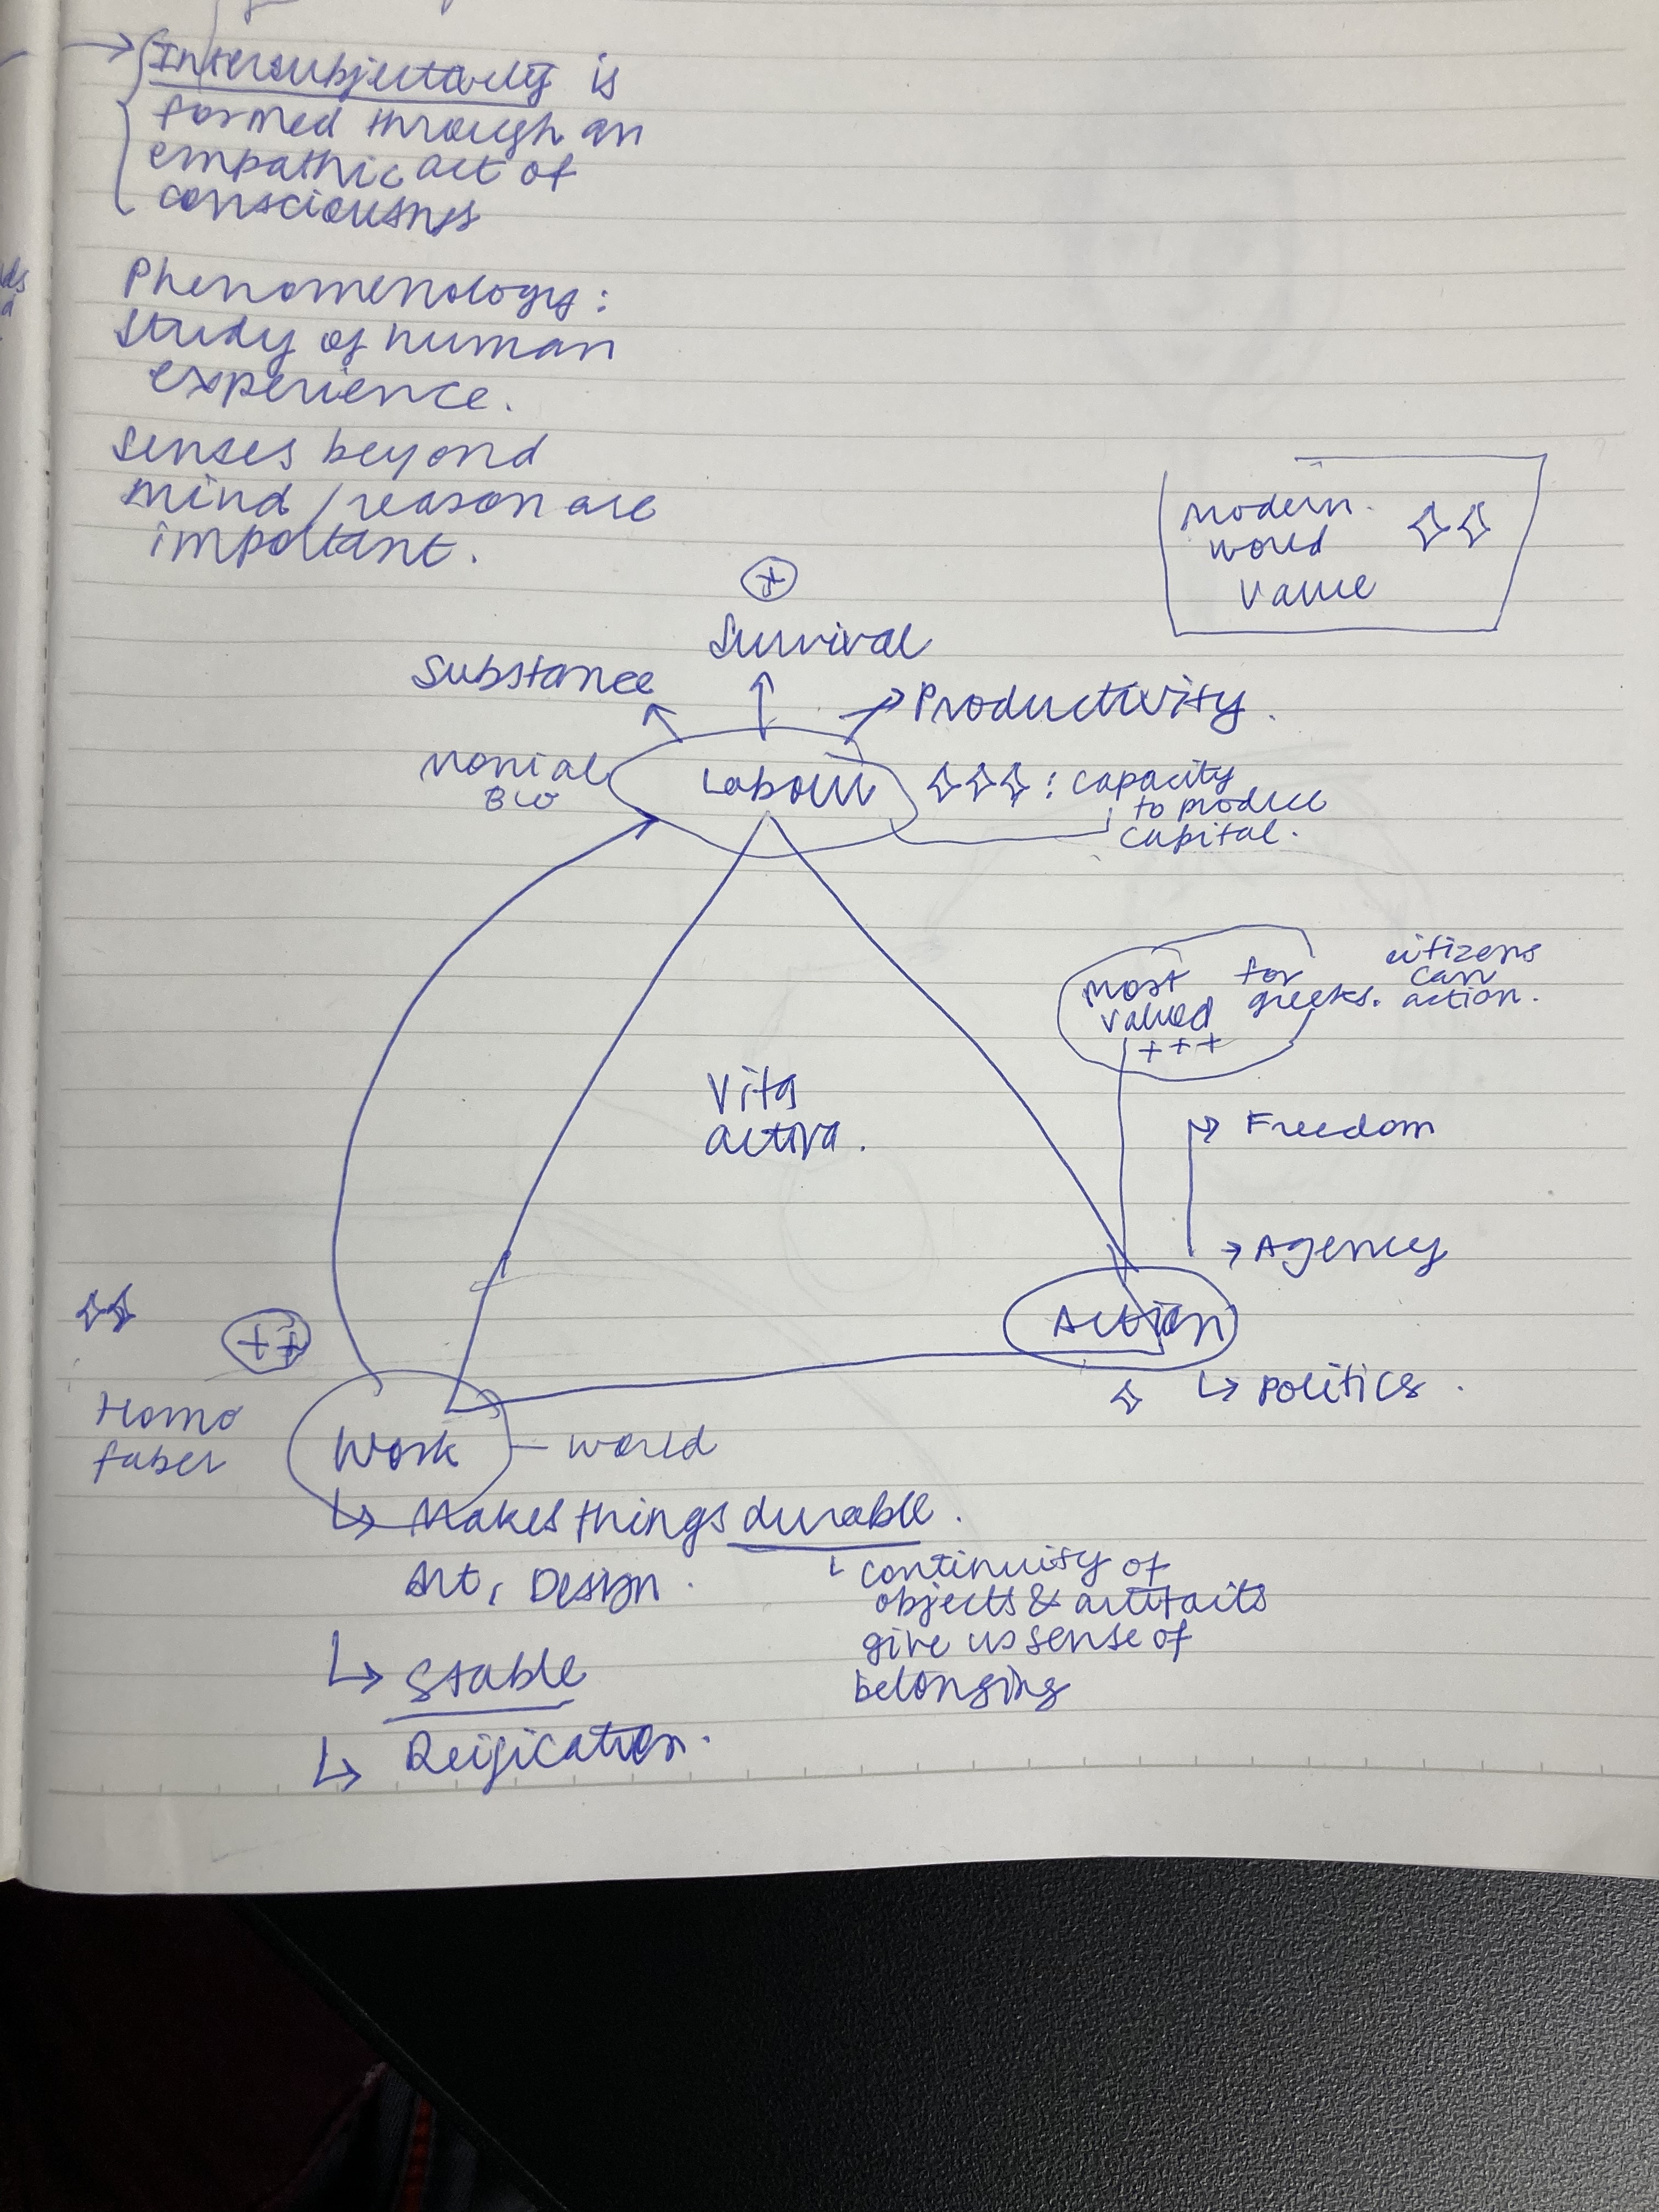 Intersubjectively is
formed through an
empathic act of
consciousness
Phenomenology:
Study of human
experience.
Senses beyond
mind/reason are
important.
Modern
world
value
Survival
Substance
Productivity.
Labour
: capacity
to produce
capital.
Bio
most
valued
+++
for
greeks.
citizens
can
action.
Vita
activa.
Freedom
Agency
Action
Politics.
++
Homo
faber
Work - world
Makes things durable.
Art, Design.
continuity of
objects & artifacts
give us sense of
belonging
Stable
Reification.